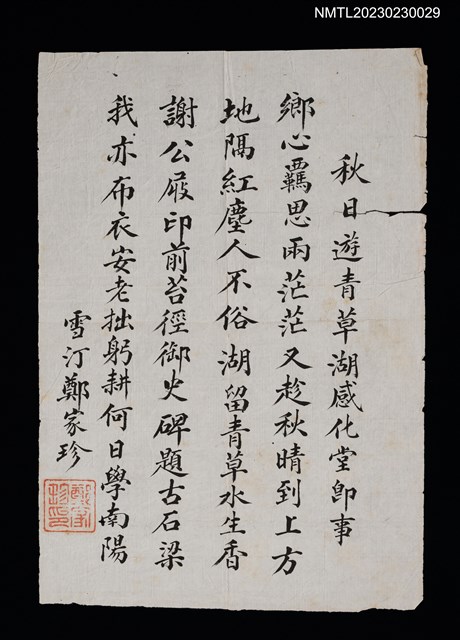 NMTL20230230029
秋日遊青草湖感化堂即事
鄉心羈思兩茫茫又趁秋晴到上方
地隔紅塵人不俗湖留青草水生香
謝公屐印前苔徑御史碑題古石梁
我亦布衣安老拙躬耕何日學南陽
雪汀鄭家珍
鄭家珍印